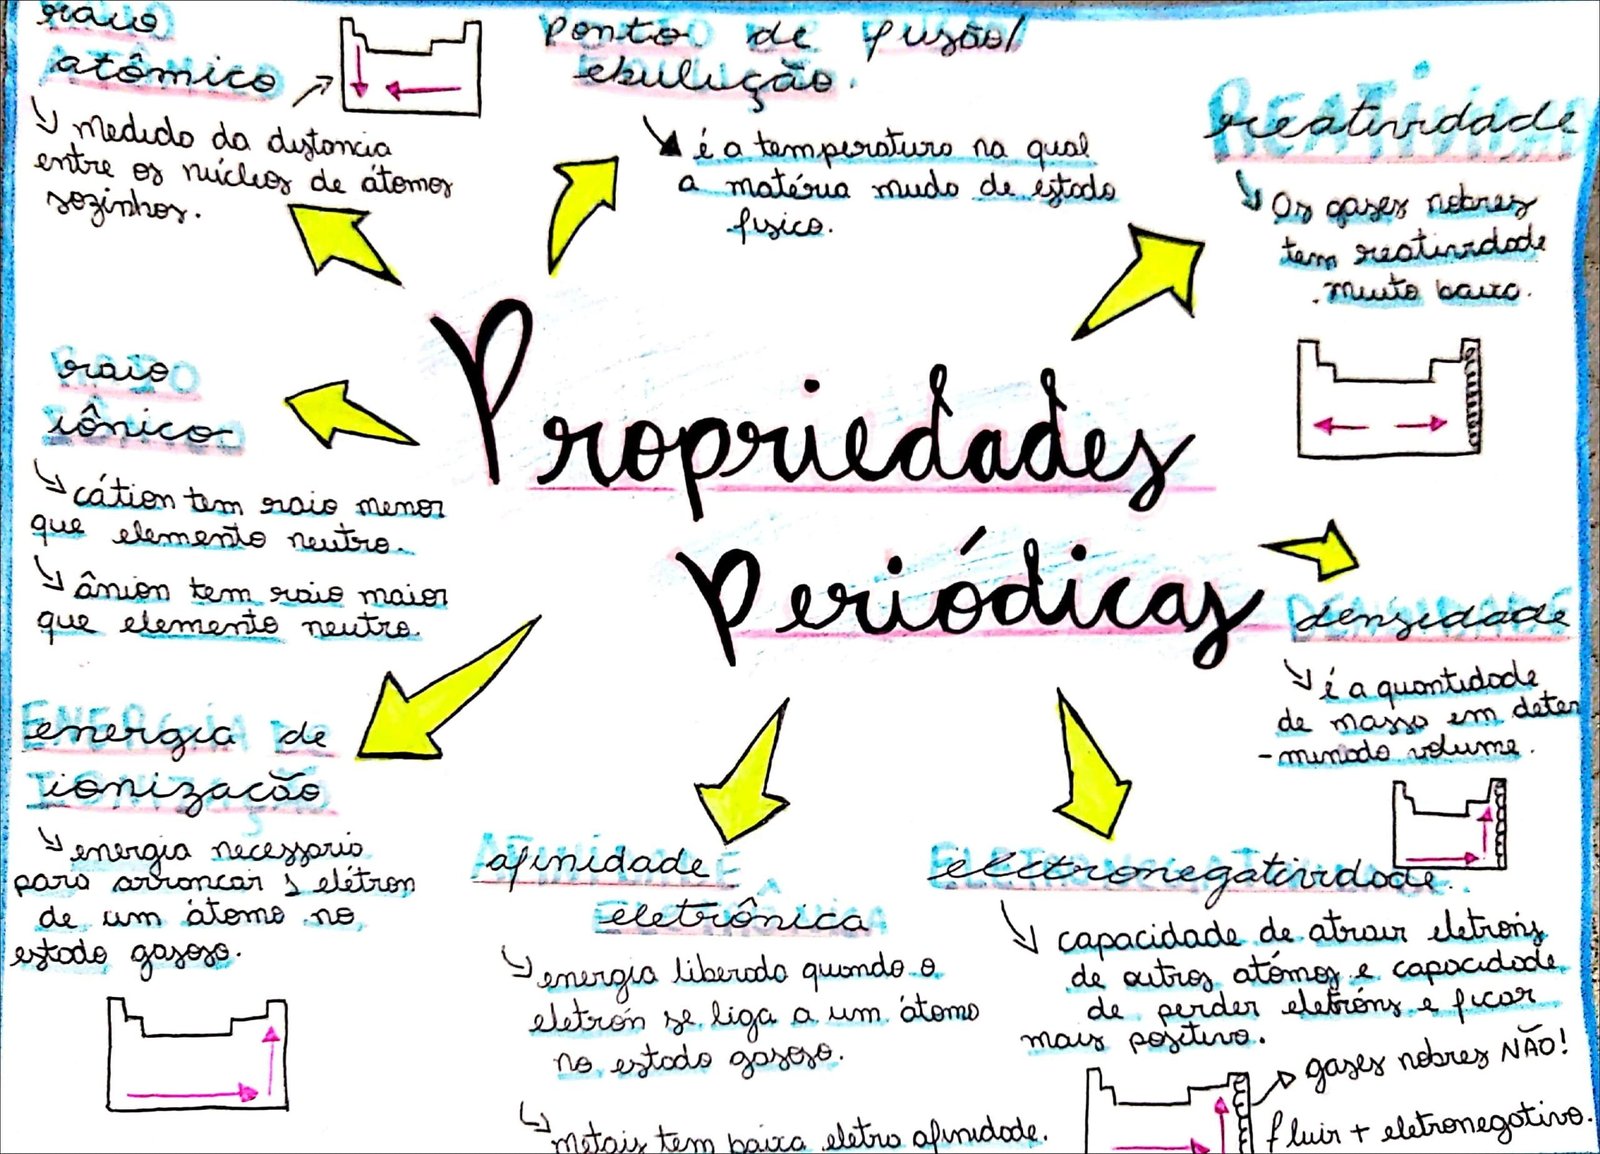 raio
atômico
↘ medida da distancia
entre os núcleos de átomos
sozinhos.
Ponto de fusão/
ebulução.
↘ é a temperatura na qual
a matéria muda de estado
fisico.
reatividade
↘ Os gases nobres
tem reatividade
muito baixa.
Propriedades
Periódicas
raio
iônico
↘ cátion tem raio menor
que elemento neutro.
↘ ânion tem raio maior
que elemento neutro.
densidade
↘ é a quantidade
de massa em deter
-minado volume.
energia de
ionização
↘ energia necessaria
para arrancar 1 elétron
de um átomo no
estado gasoso.
afinidade
eletrônica
↘ energia liberada quando o
eletrón se liga a um átomo
no estado gasoso.
↘ metais tem baixa eletro afinidade.
electronegatividade.
↘ capacidade de atrair eletróns
de outros atómos e capacidade
de perder eletróns e ficar
mais positivo.
gases nobres NÃO!
fluir + eletronegativo.